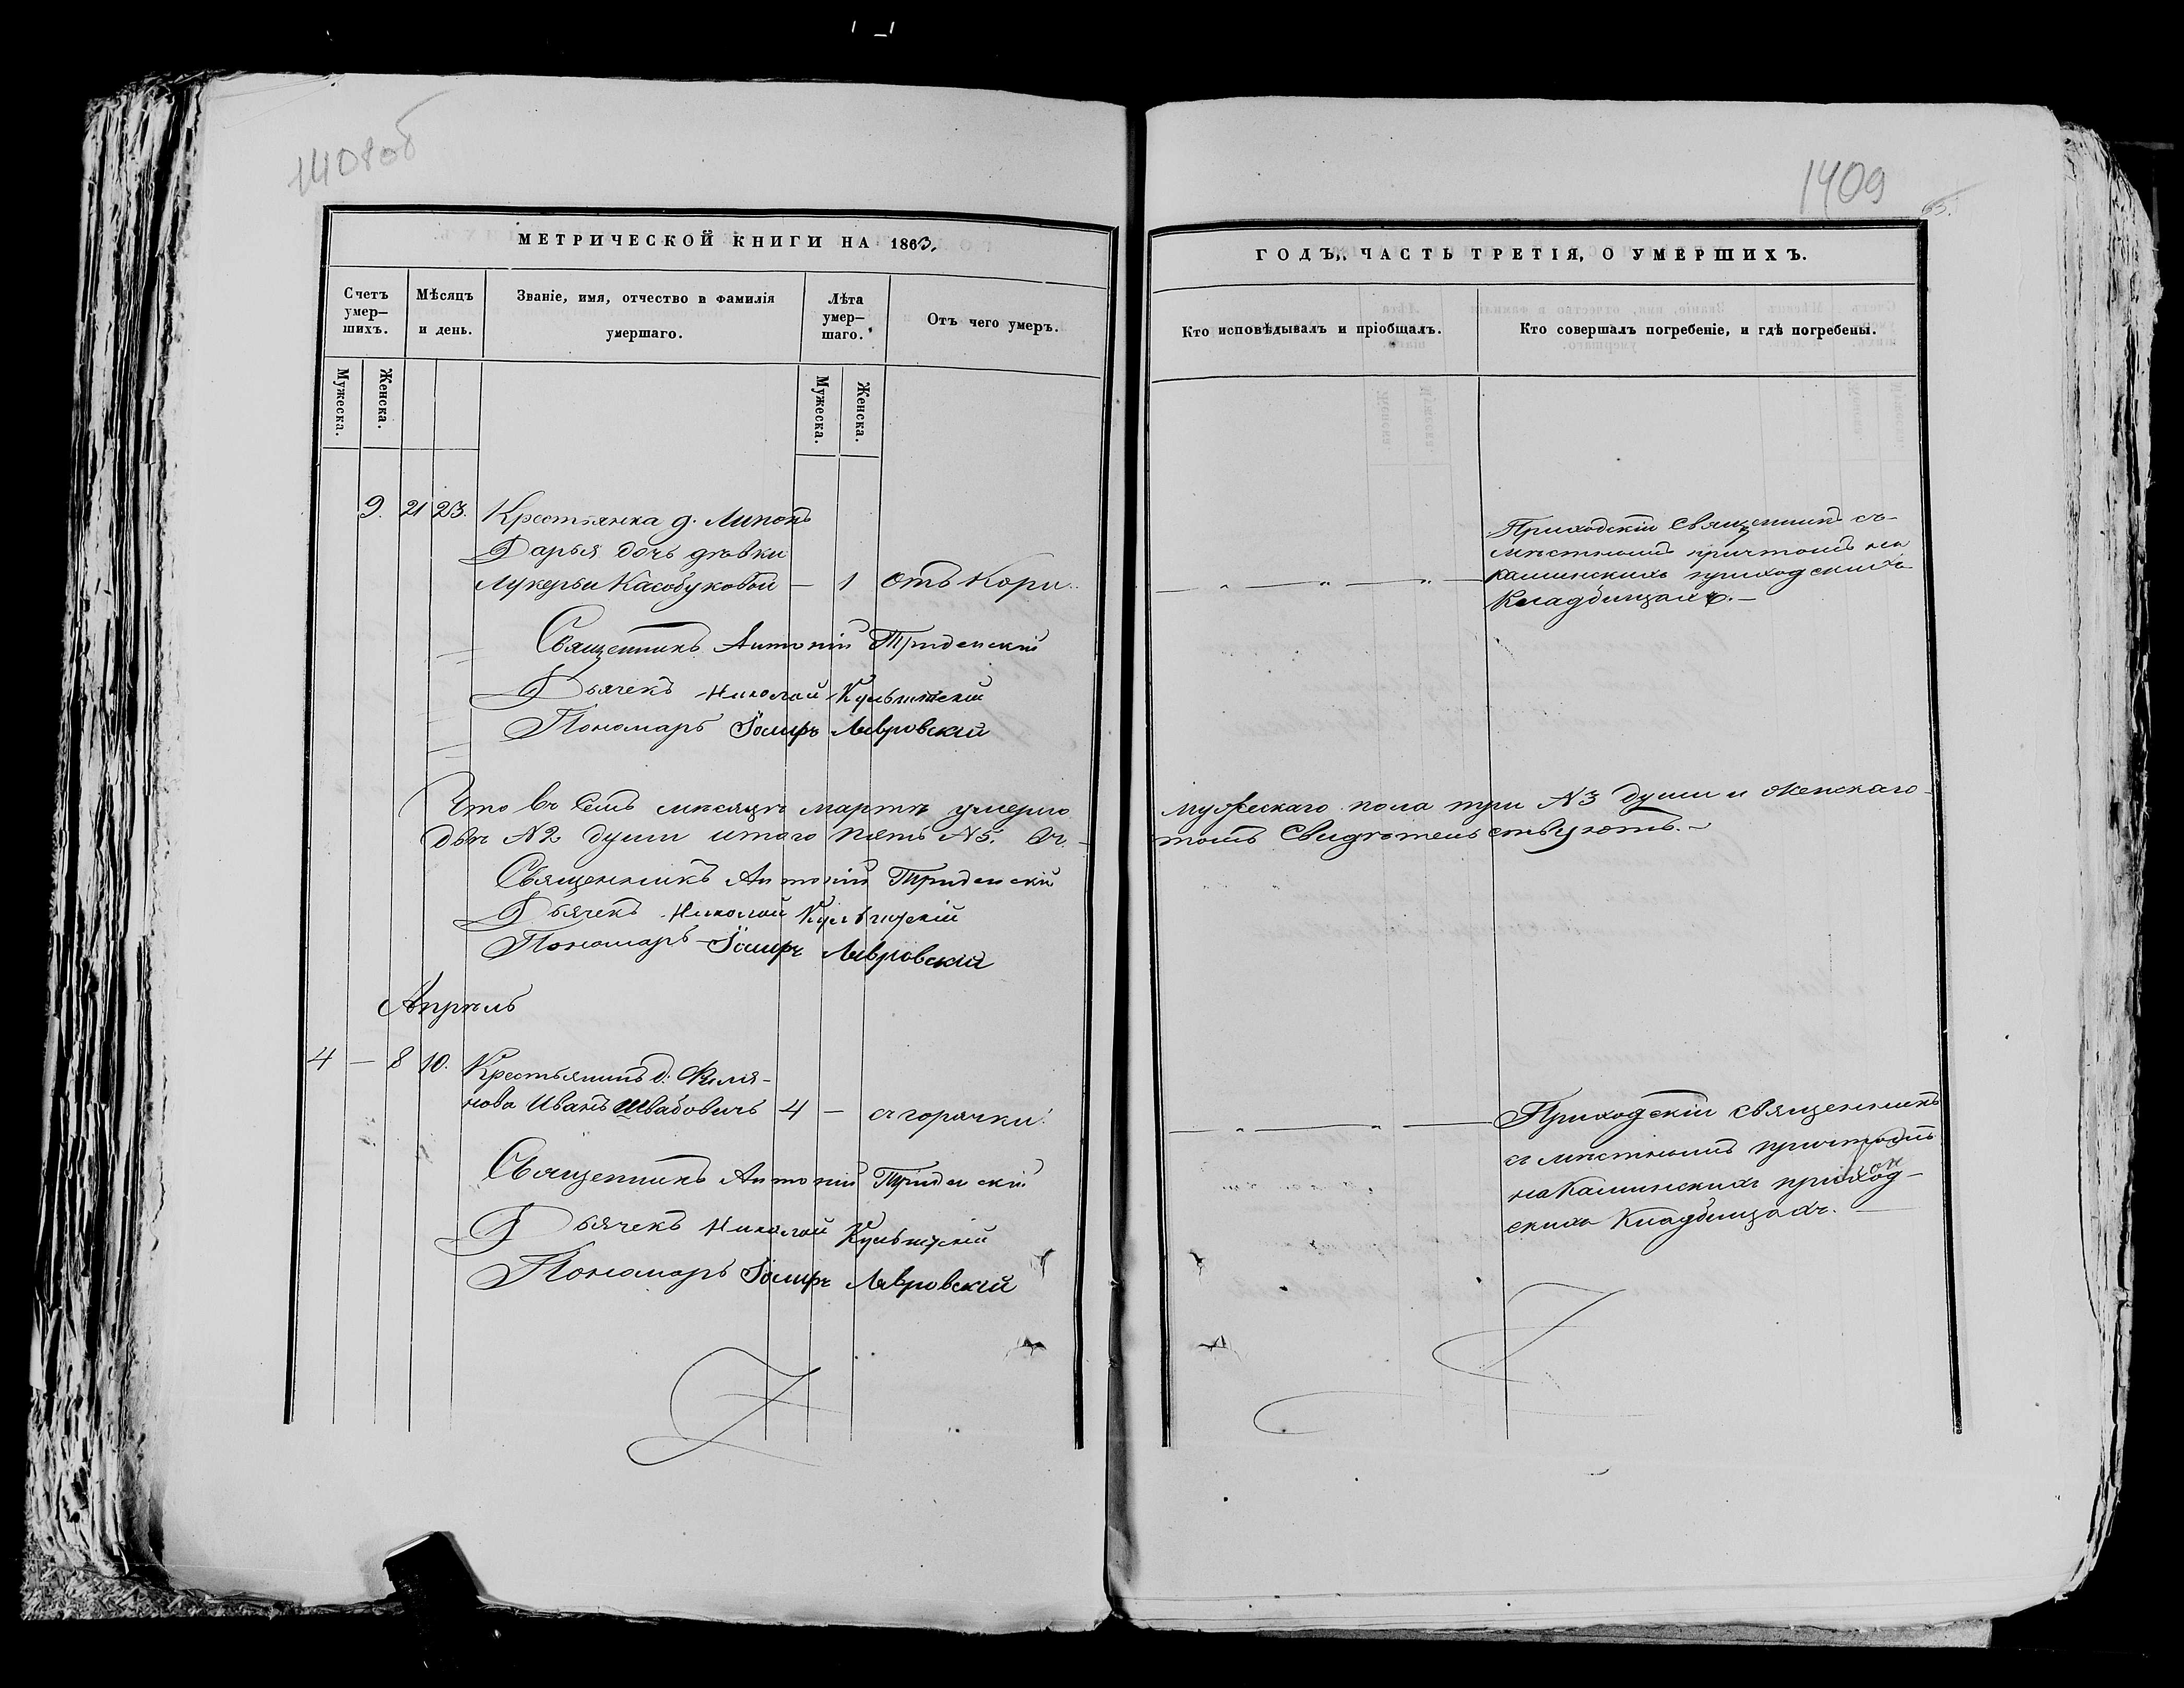 1408об
1409
65.
МЕТРИЧЕСКОЙ КНИГИ НА 1863.
ГОДЪ,, ЧАСТЬ ТРЕТІЯ, О УМЕРШИХЪ.
Счетъ умер—шихъ.
Мѣсяцъ и день.
Званіе, имя, отчество и фамилія умершаго.
Лѣта умер—шаго.
Отъ чего умеръ.
Кто исповѣдывалъ и пріобщалъ.
Кто совершалъ погребеніе, и гдѣ погребены.
Мужеска.
Женска.
Мужеска.
Женска.
9. 21 23. Крестьянка д. Липокъ
Дарья дочь дѣвки
Лукерьи Касобуковой — 1 отъ Кори..
Приходскій Священникъ съ
мѣстнымъ причтомъ на
Каминскихъ приходскихъ
Кладбищахъ.—
Священникъ Антоній Триденскій
Дьячекъ Николай
Пономарь Іосифъ Лавровскій
Что въ семъ мѣсяцѣ мартѣ умерло мужескаго пола три №3 души и женскаго
двѣ №2 души итого пять №5. въ томъ свидѣтельствуютъ.—
Священникъ Антоній Триденскій
Дьячекъ Николай
Пономарь Іосифъ Лавровскій
Апрѣль
4 — 8 10. Крестьянинъ д.
нова Иванъ Швабовичъ 4 — съ горячки.
Приходскій священникъ
съ мѣстнымъ причтомъ
на Каминскихъ приход-
скихъ Кладбищахъ.
Священникъ Антоній Триденскій
Дьячекъ Николай
Пономарь Іосифъ Лавровскій